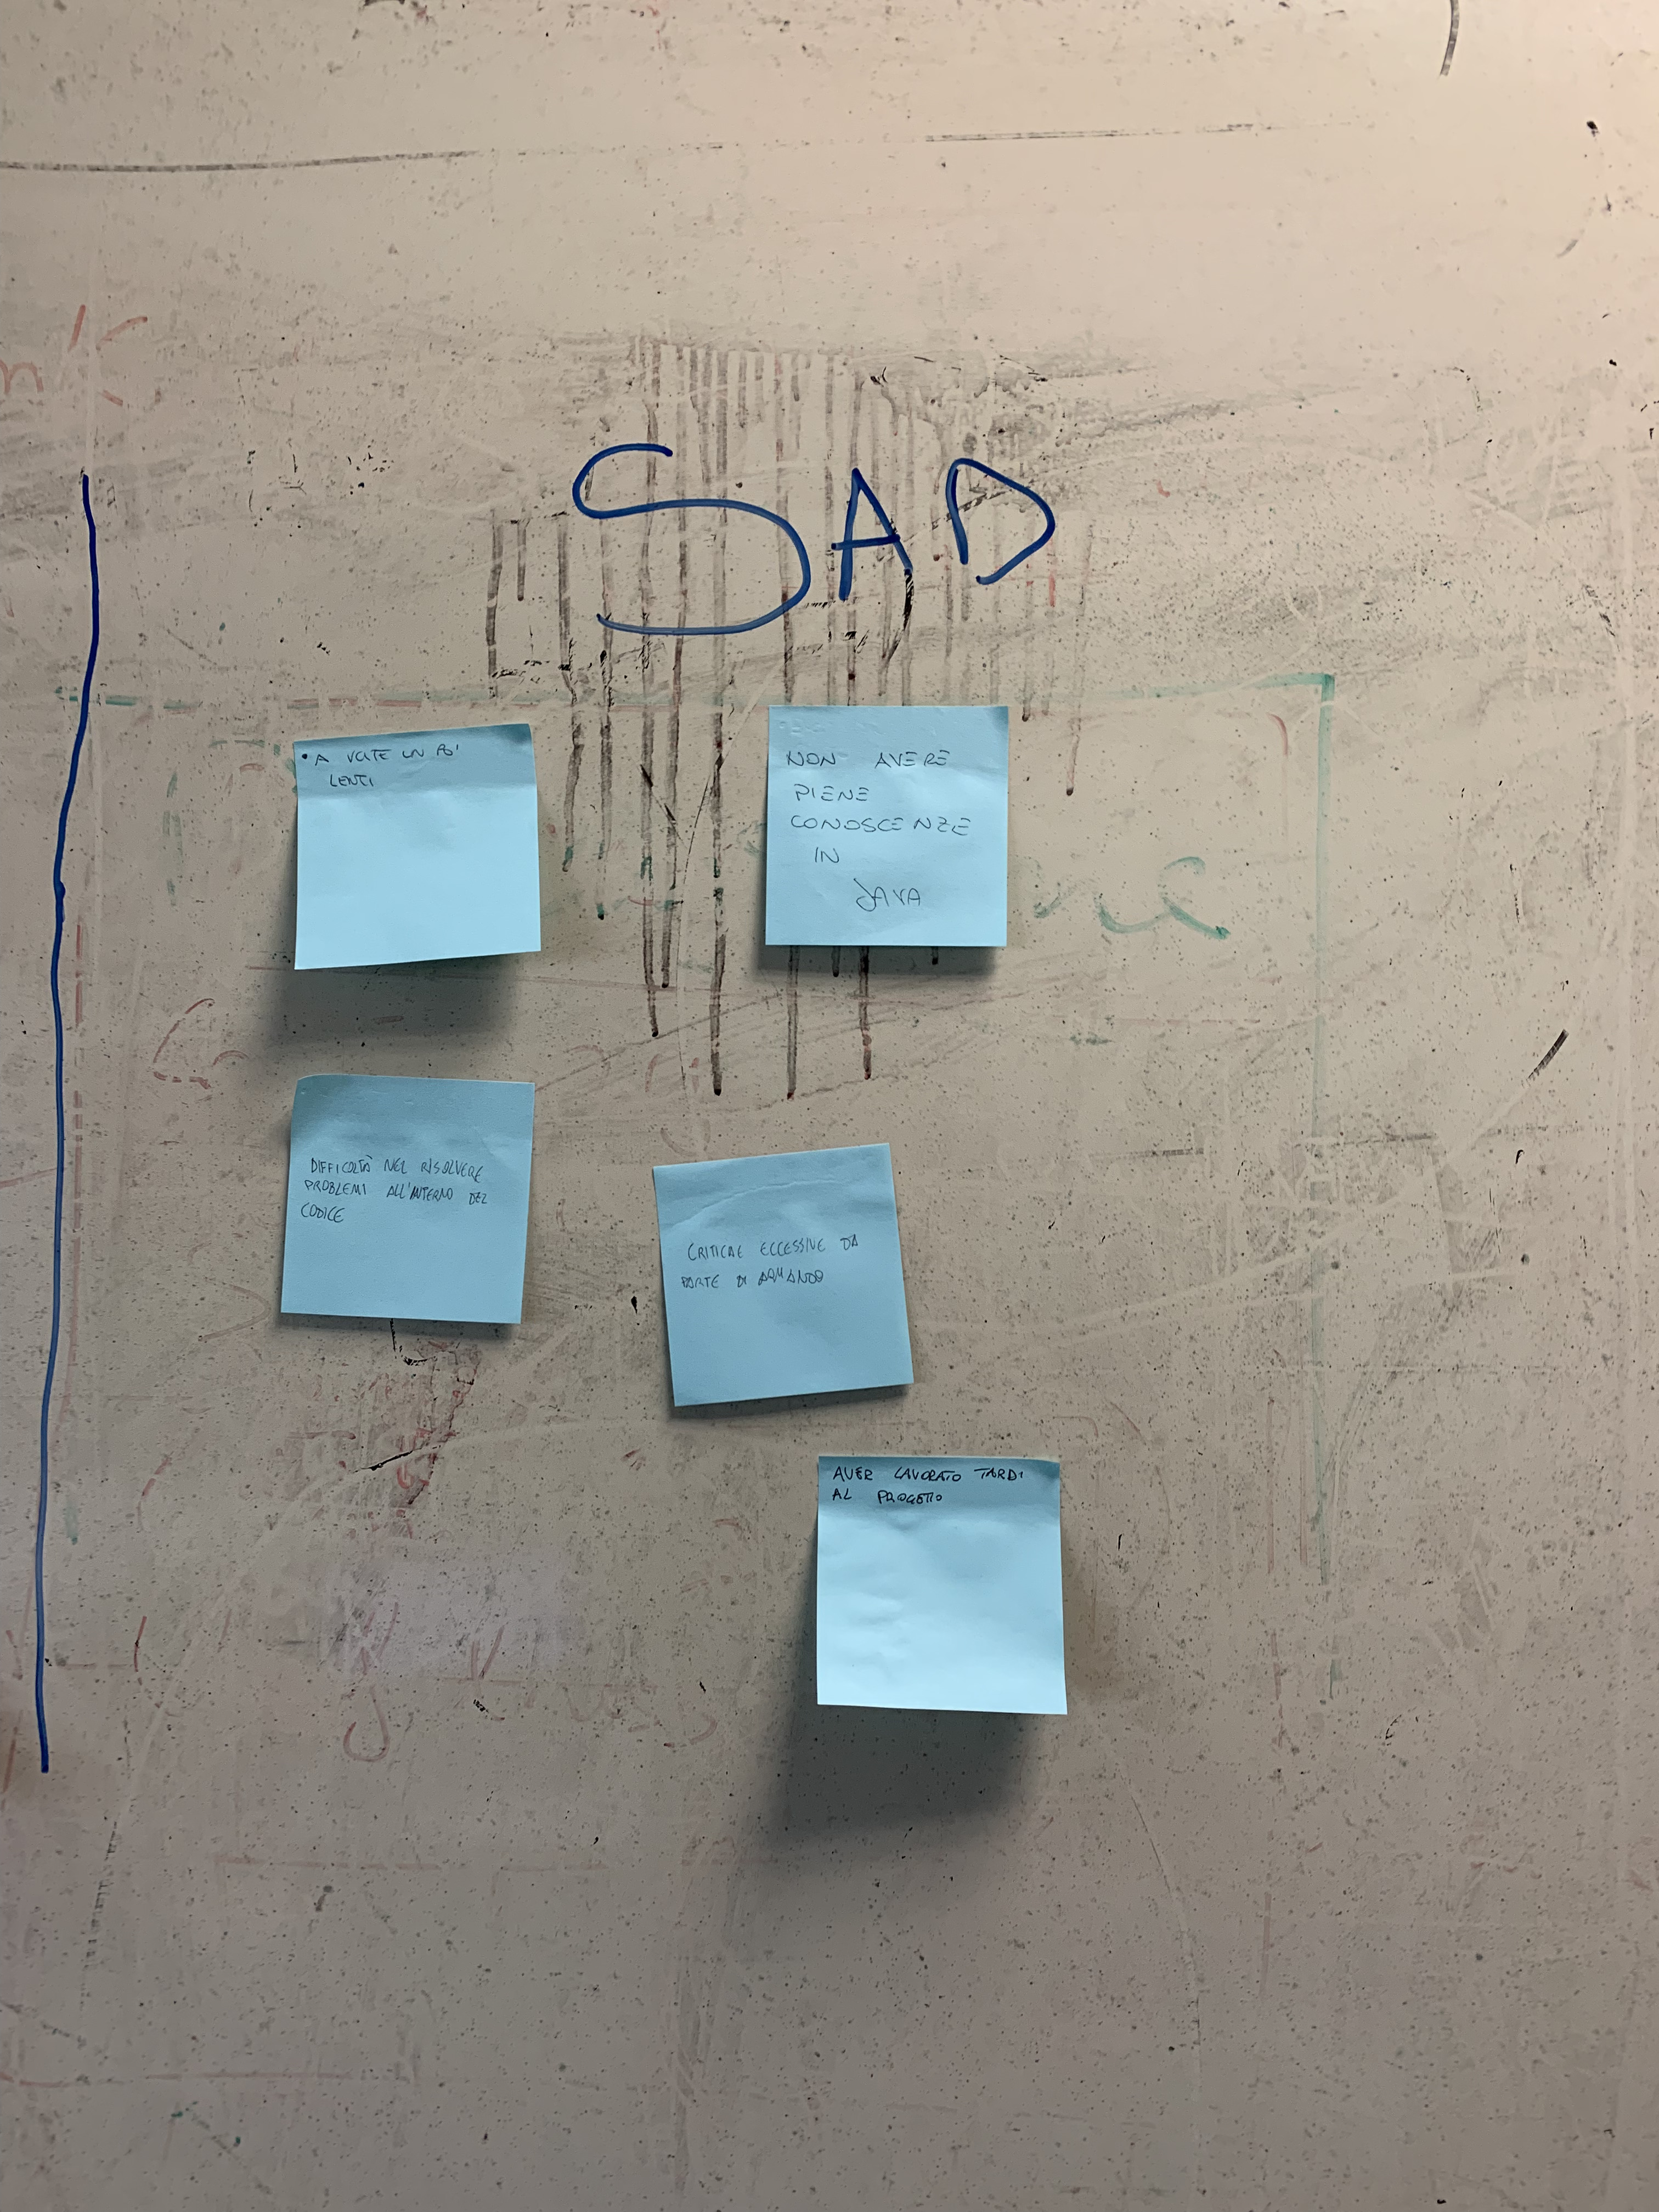 SAD
• A VOLTE UN PO'
LENTI
NON AVERE
PIENE
CONOSCENZE
IN
JAVA
DIFFICOLTÀ NEL RISOLVERE
PROBLEMI ALL'INTERNO DEL
CODICE
CRITICHE ECCESSIVE DA
PARTE DI ARMANDO
AVER LAVORATO TARDI
AL PROGETTO